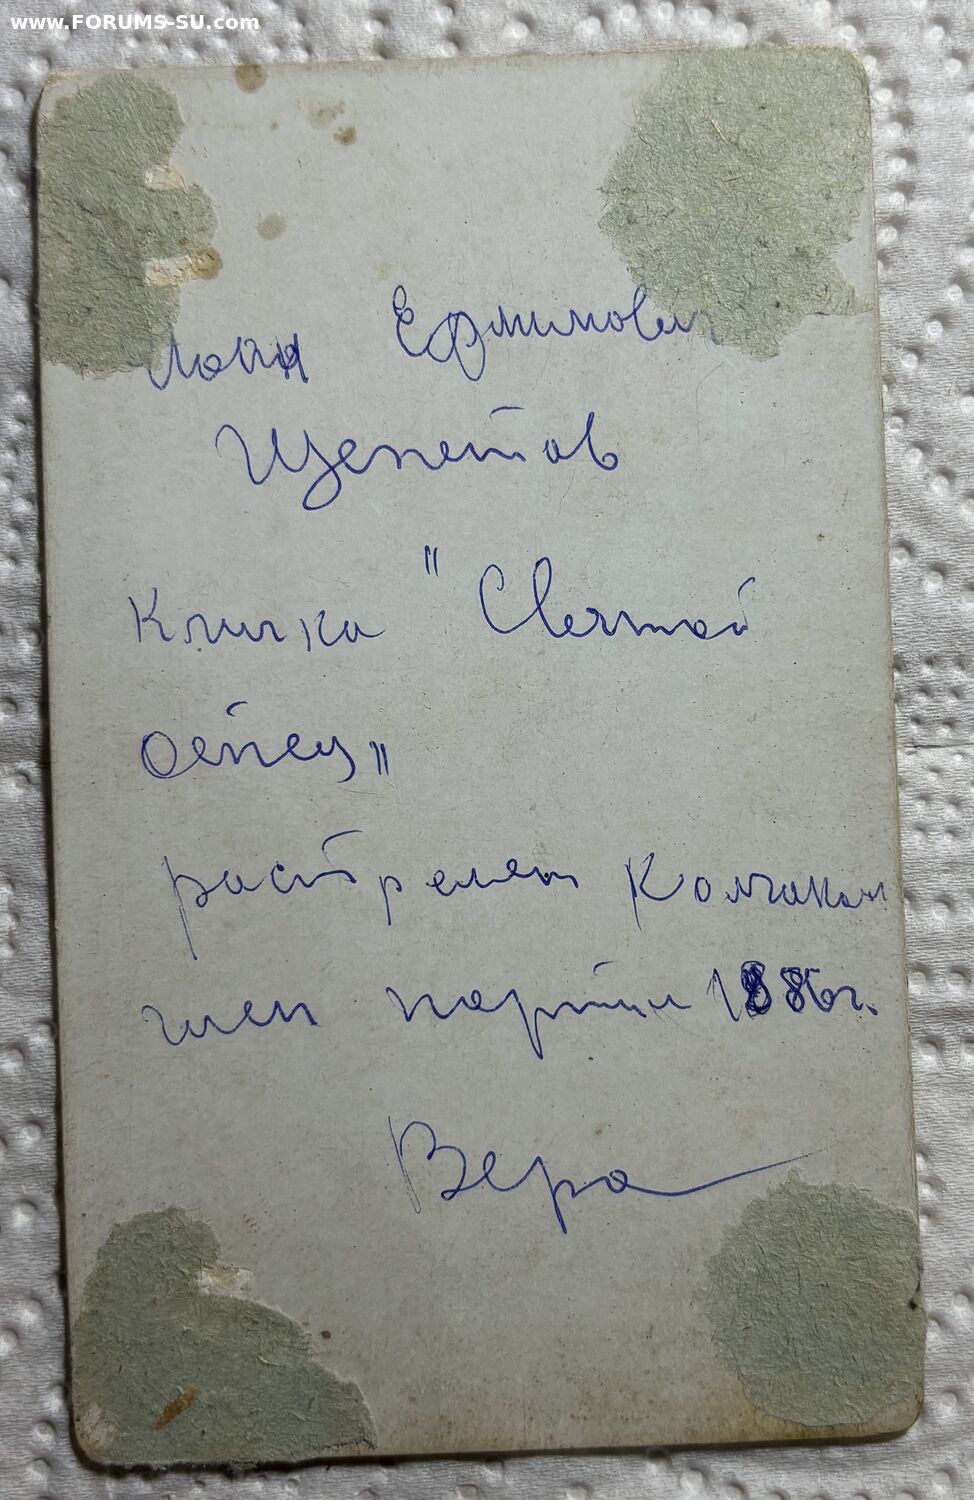 www.FORUMS-SU.com
Иоан Ефимович
Щепетов
Кличка "Святой
Отец"
растрелен Колчаком
член партии 1886г.
Вера